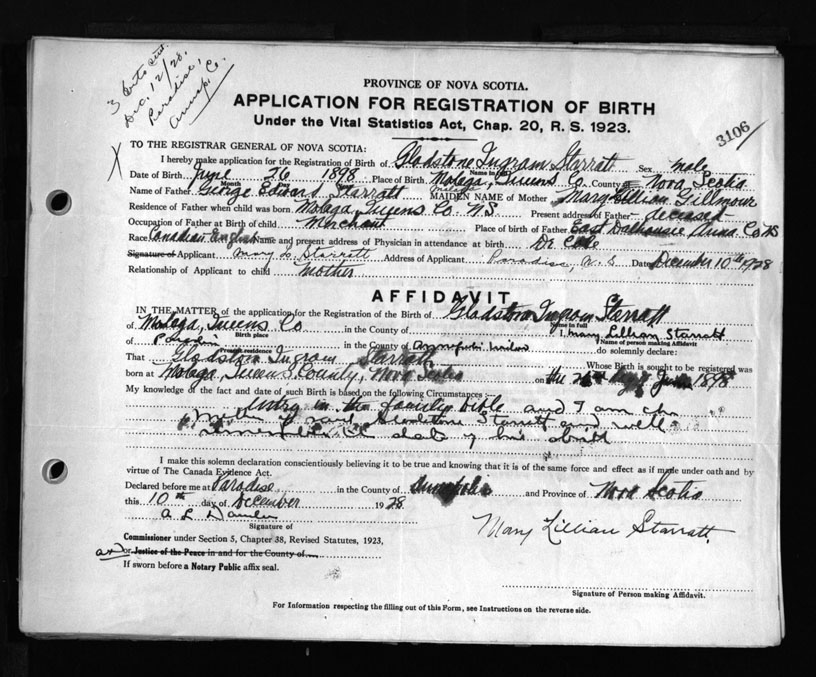 3 certs sent.
Dec. 12/28.
Paradise,
Annap. Co.
PROVINCE OF NOVA SCOTIA.
APPLICATION FOR REGISTRATION OF BIRTH
Under the Vital Statistics Act, Chap. 20, R. S. 1923.
3106
X
TO THE REGISTRAR GENERAL OF NOVA SCOTIA:
I hereby make application for the Registration of Birth of Gladstone Ingram Starratt Sex male
Name in full
Date of Birth June 26 1898 Place of Birth Molega, Queens Co County of Nova Scotia
Month Day
Name of Father George Edward Starratt MAIDEN NAME of Mother Mary Lillian Gillmour
Residence of Father when child was born Molega, Queens Co. N S Present address of Father deceased
Occupation of Father at Birth of child Merchant Place of Birth of Father East Dalhousie Anna Co NS
Race Canadian English Name and present address of Physician in attendance at birth Dr Cole
Signature of Applicant Mary L. Starratt Address of Applicant Paradise, N. S Date December 10th 1928
Relationship of Applicant to child Mother
AFFIDAVIT
IN THE MATTER of the application for the Registration of the Birth of Gladstone Ingram Starratt
Name in full
of Molega, Queens Co in the County of I Mary Lillian Starratt
Birth place Name of person making Affidavit
of Paradise in the County of Annapolis do solemnly declare:
Present residence
That Gladstone Ingram Starratt Whose Birth is sought to be registered was
born at Molega, Queens County, Nova Scotia on the 26th day of June 1898
My knowledge of the fact and date of such Birth is based on the following Circumstances:
Entry in the family bible and I am the
mother of said Gladstone Starratt and well
remember the date of his birth
I make this solemn declaration conscientiously believing it to be true and knowing that it is of the same force and effect as if made under oath and by
virtue of The Canada Evidence Act.
Declared before me at Paradise in the County of Annapolis and Province of Nova Scotia
this 10th day of December 1928
A L
Signature of
Mary Lillian Starratt
Commissioner under Section 5, Chapter 38, Revised Statutes, 1923,
or Justice of the Peace in and for the County of
If sworn before a Notary Public affix seal.
Signature of Person making Affidavit.
For Information respecting the filling out of this Form, see Instructions on the reverse side.